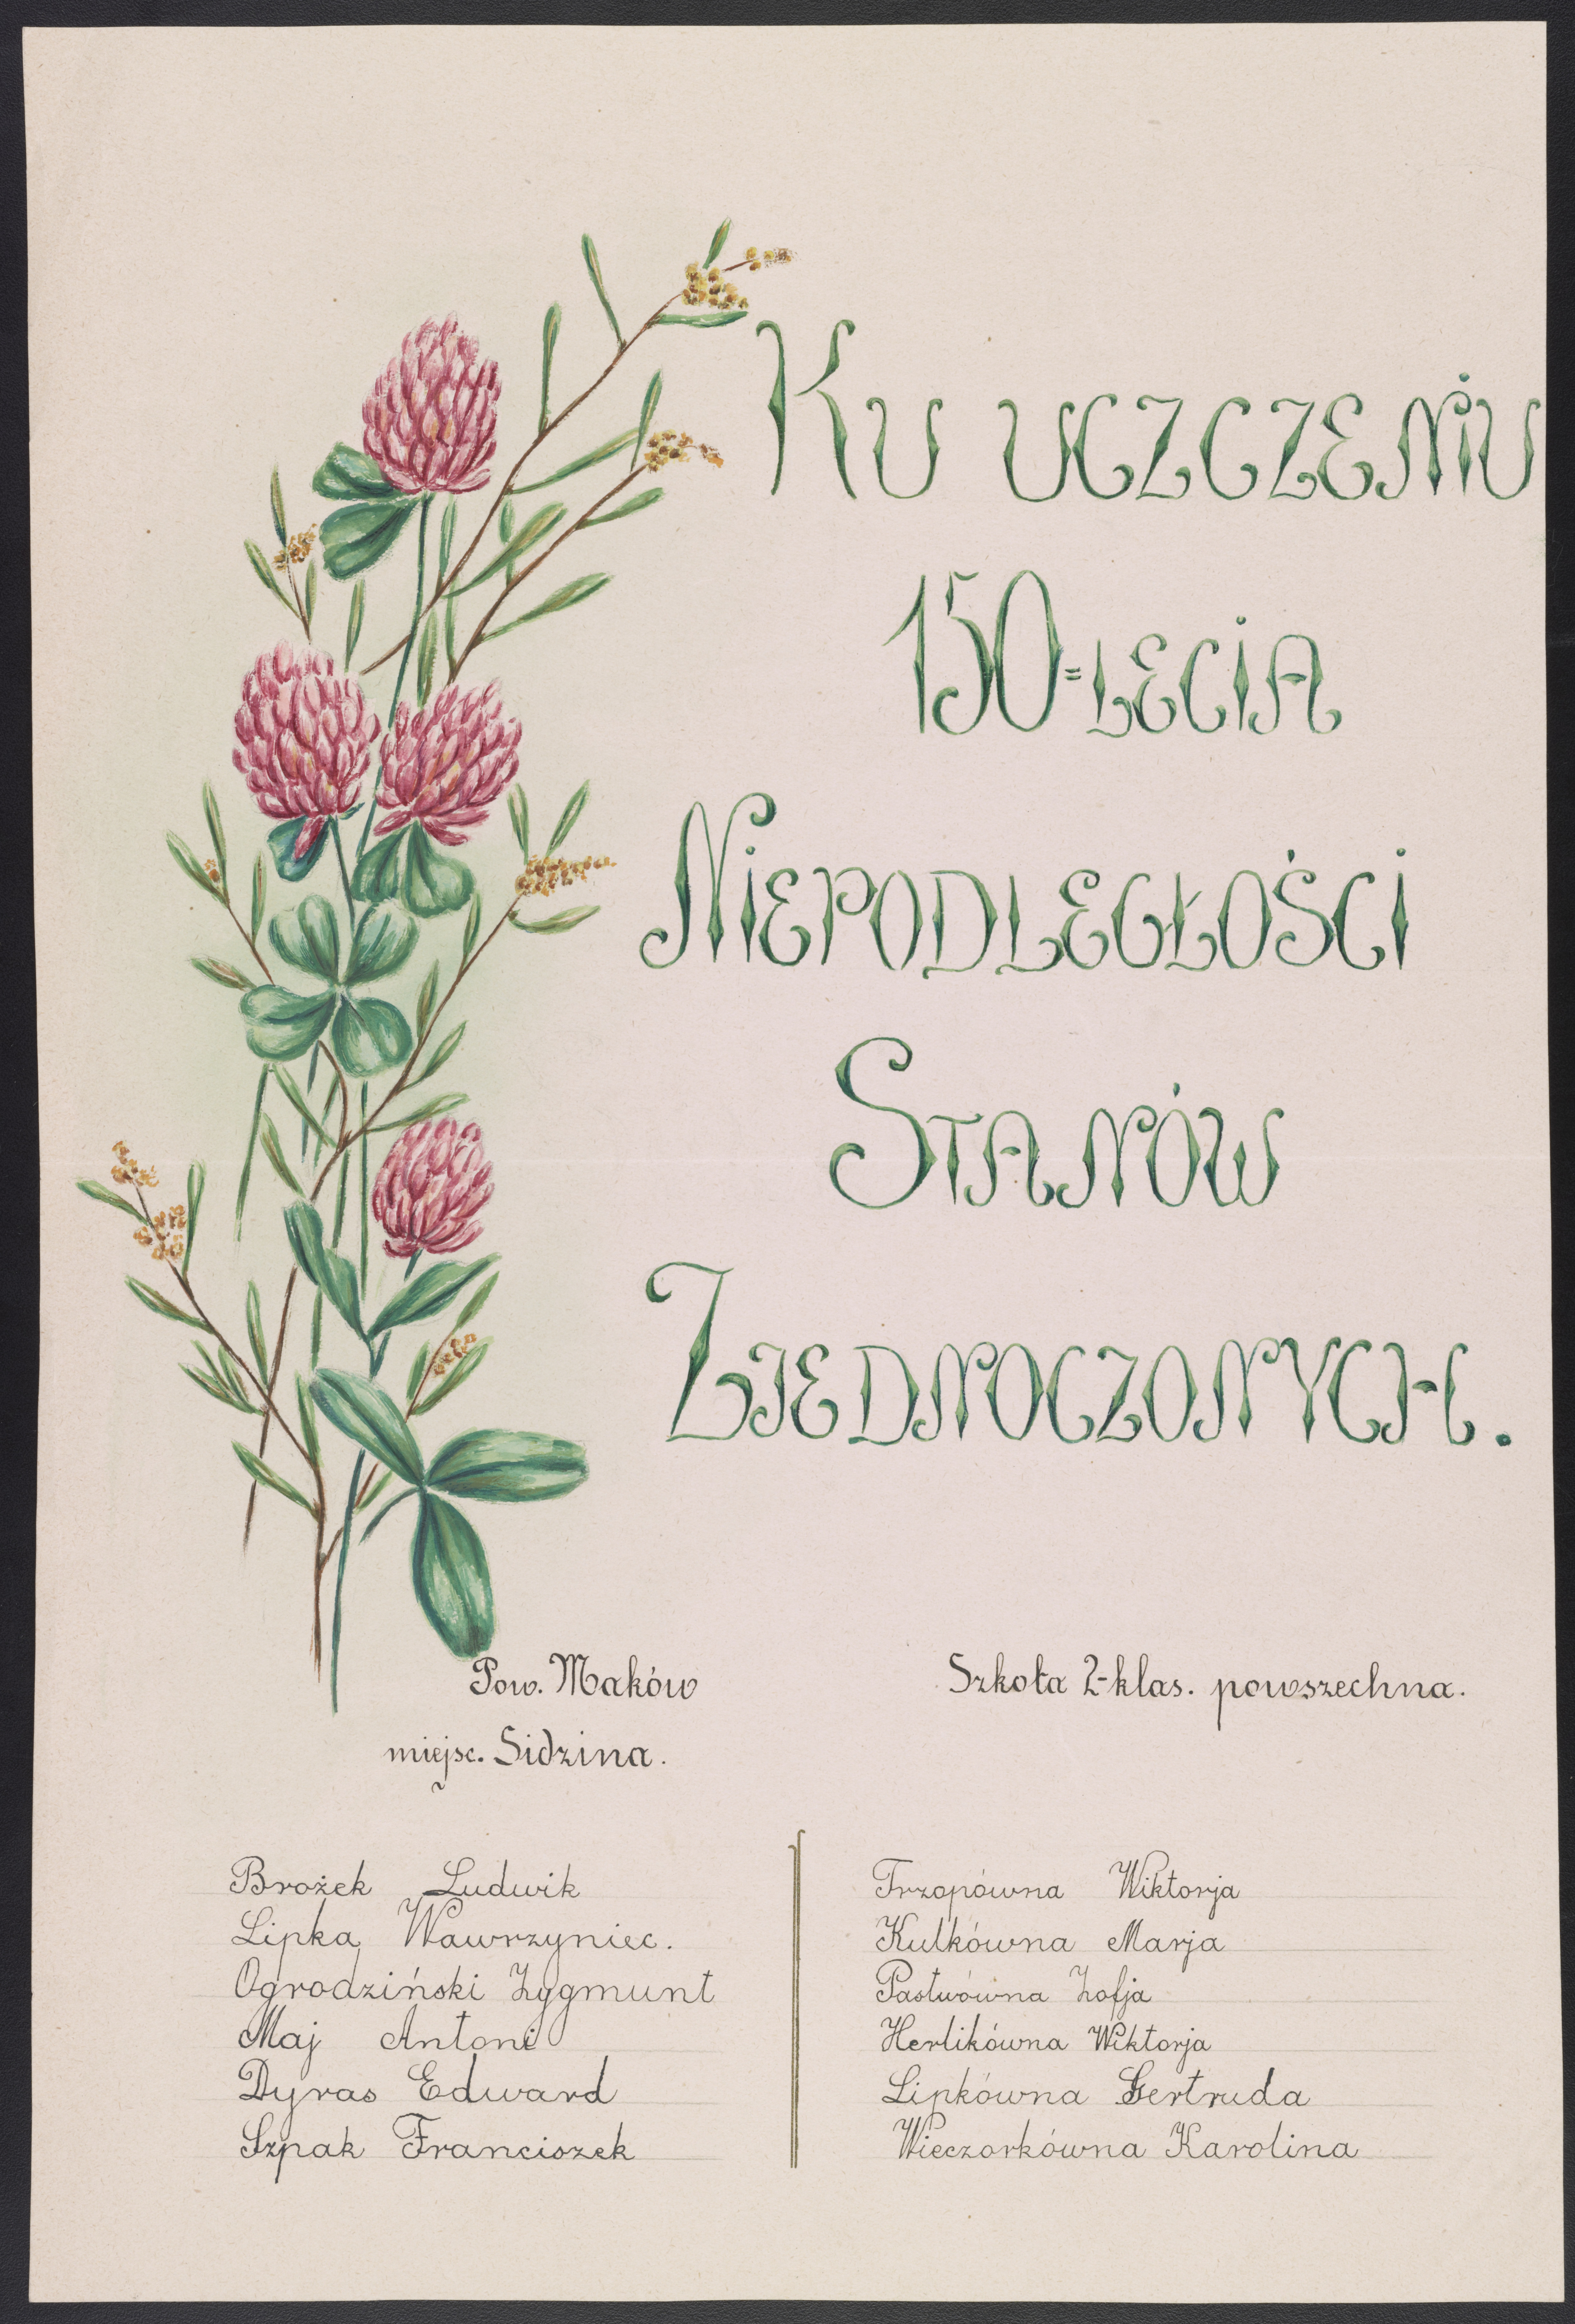 Ku uczczeniu
150=lecia
Niepodległości
Stanów
Zjednoczonych.
Pow. Maków
miejsc. Sidzina.
Szkoła 2-klas. powszechna.
Brożek Ludwik
Lipka Wawrzyniec.
Ogrodziński Zygmunt
Maj Antoni
Dyras Edward
Szpak Franciszek
Trzopówna Wiktorja
Kulkówna Marja
Pastwówna Zofja
Herlikówna Wiktorja
Lipkówna Gertruda
Wieczorkówna Karolina